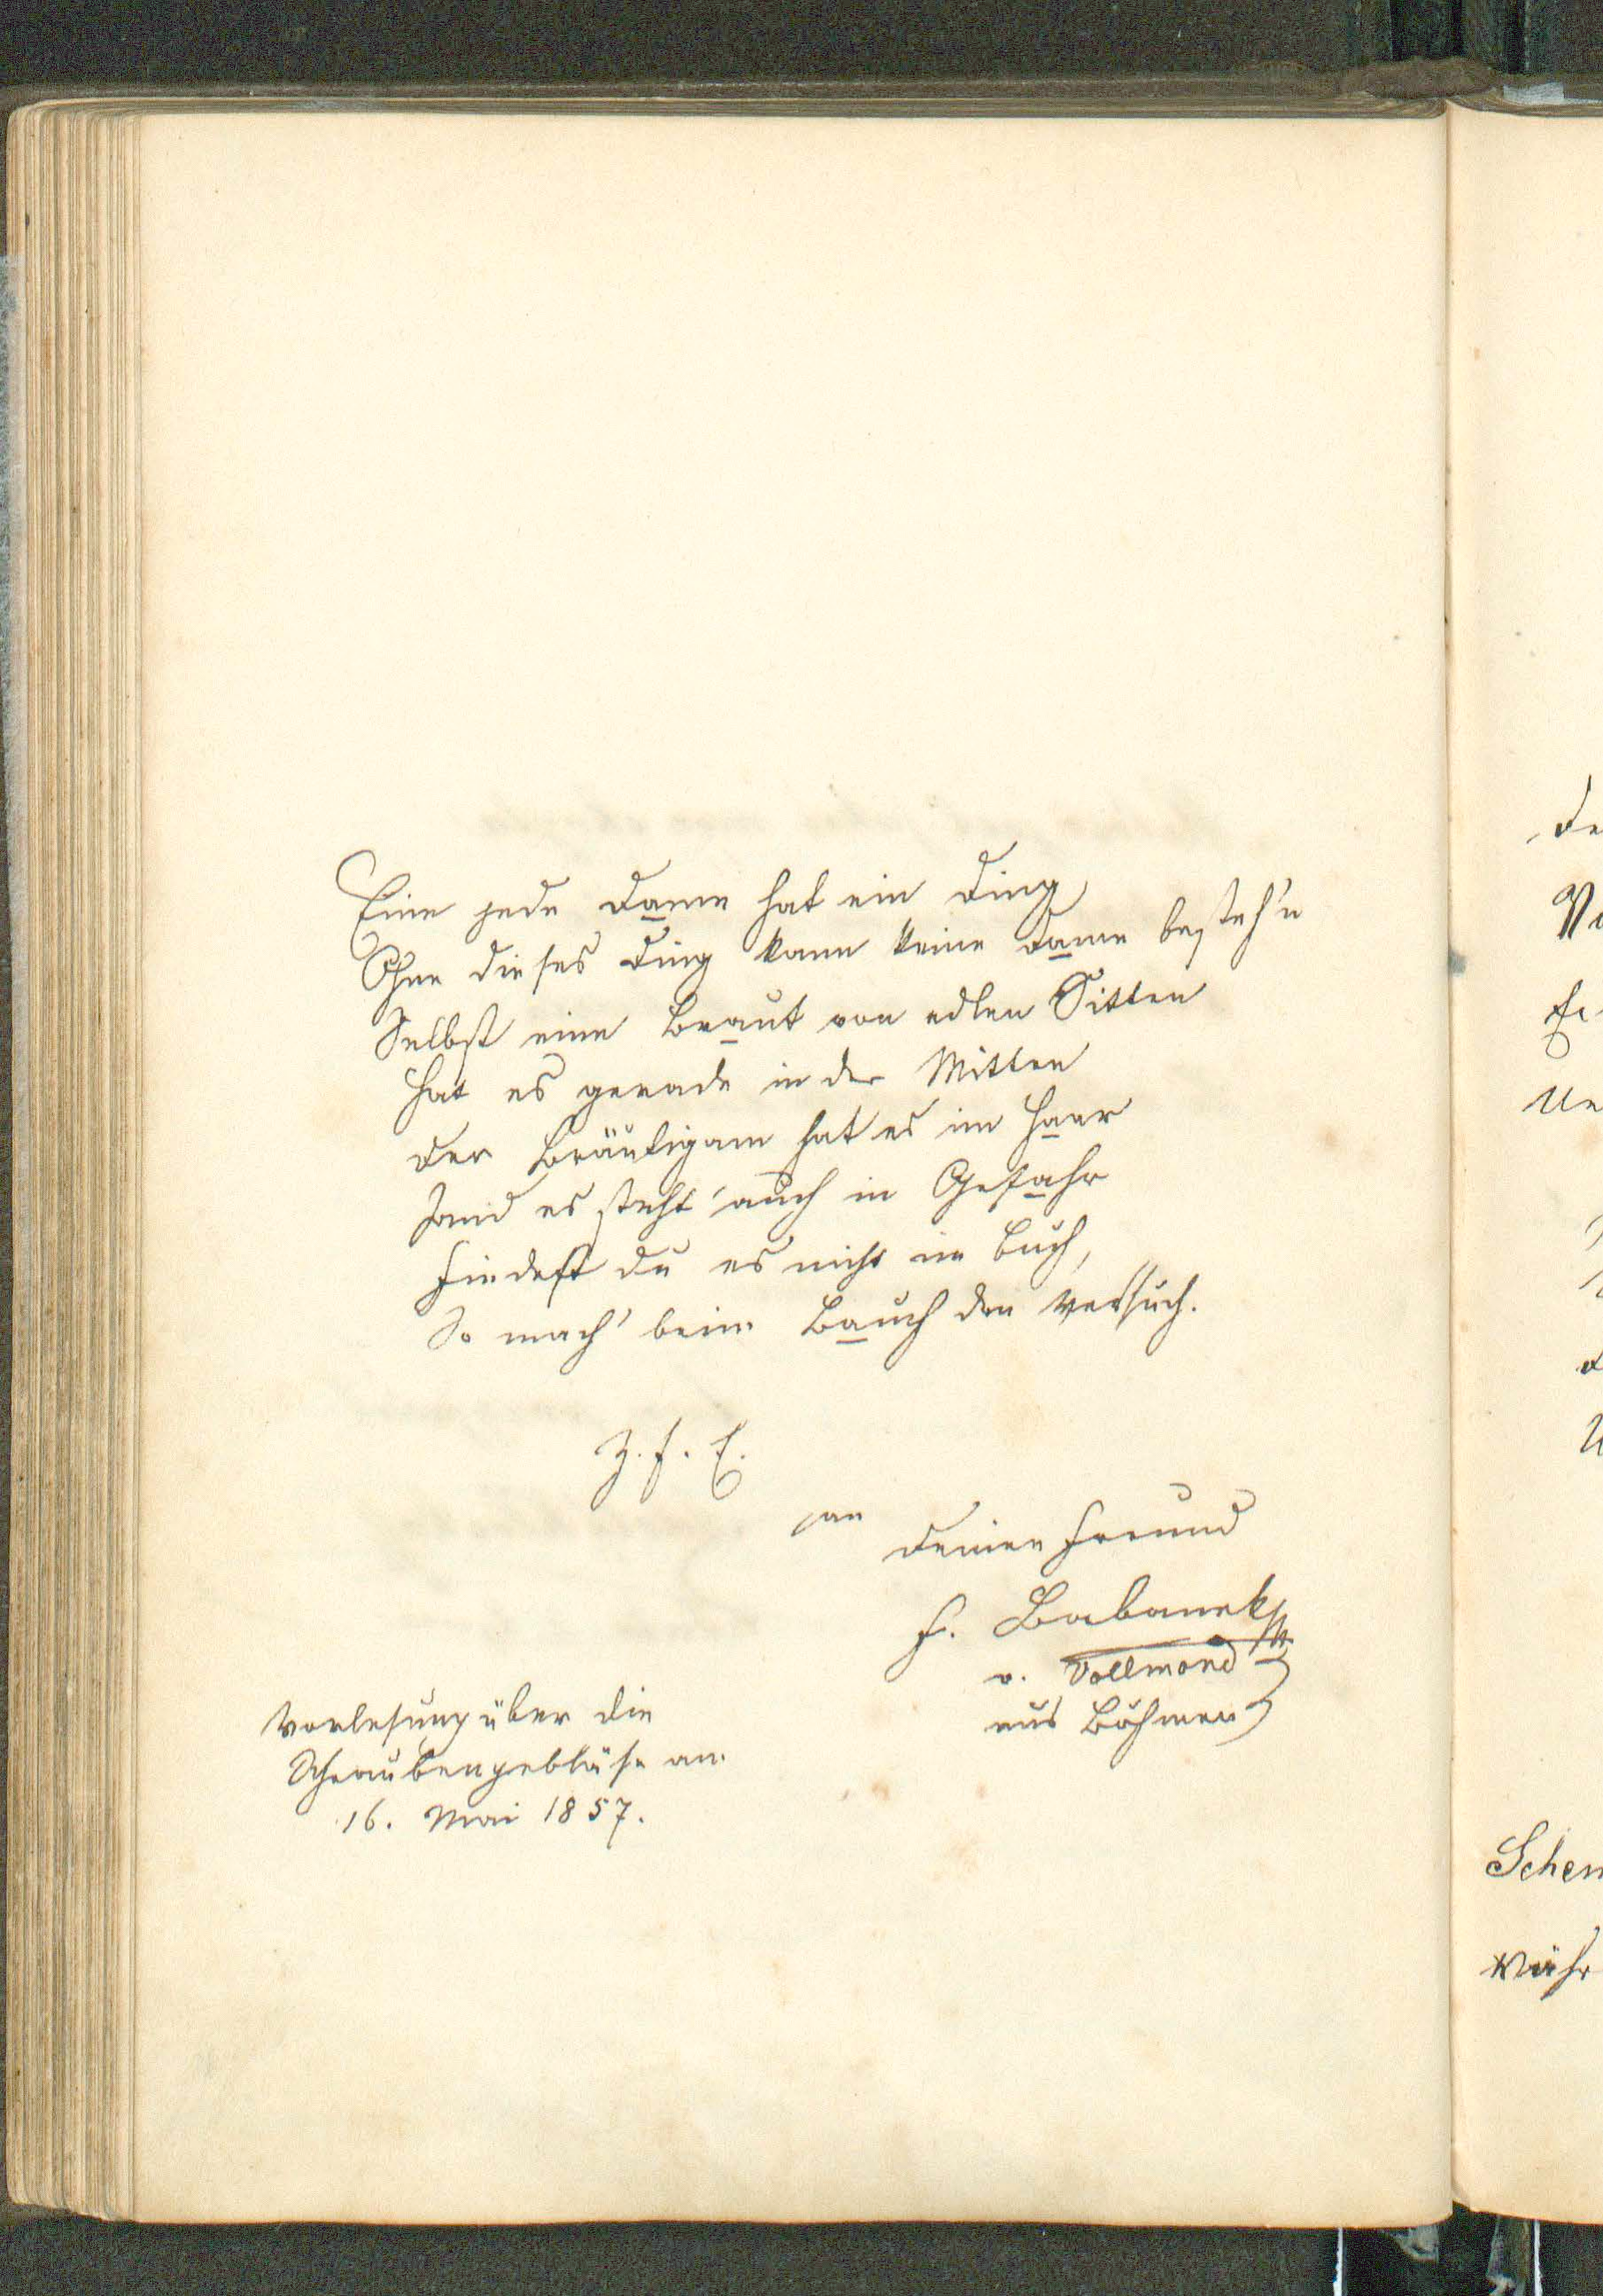 Eine jede Dame hat ein Ding
Ohne dieses Ding kann keine Dame besteh'n
Selbst eine Braut von edlen Sitten
Hat es gerade in der Mitten
Der Bräutigam hat es im Haar
und es steht auch in Gefahr
Findest du es nicht im Buch,
So mach' beim Bauch den Versuch.
Z. f. E.
an
Deinen Freund
F. Babanek
v. Vollmond
aus Böhmen
Vorlesung über die
Schraubengebläse am
16. Mai 1857.
De
Schem